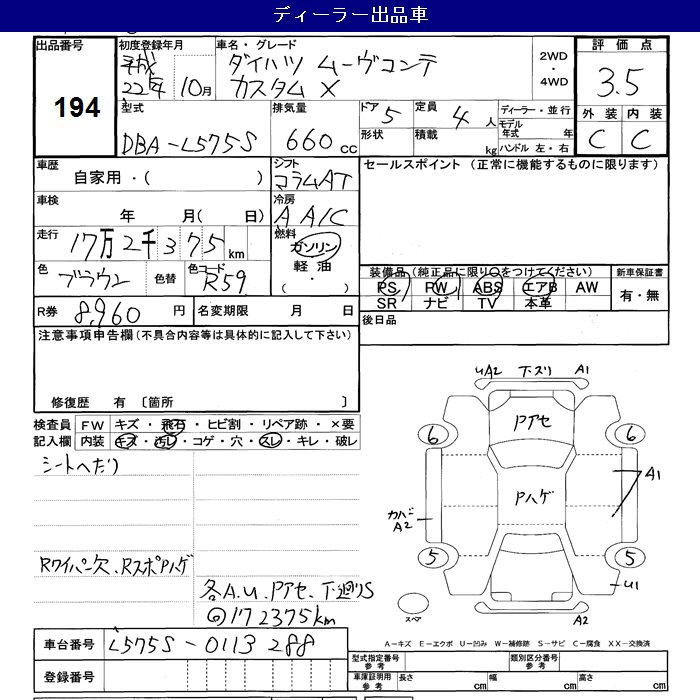 ディーラー出品車
出品番号 初度登録年月 車名・グレード 2WD ・ 4WD 評価点
194
平成 22年 10月
ダイハツ ムーヴコンテ
カスタム X
3.5
外装 内装
C C
型式 排気量 ドア 5 定員 4人 ディーラー・並行
DBA-L575S 660 cc 形状 積載 kg モデル年式 年 ハンドル 左・右
車歴 シフト セールスポイント (正常に機能するものに限ります)
自家用・( ) コラムAT
車検 冷房
年 月( 日) A A/C
走行 燃料
17万2千375km ガソリン
軽油
・
色 色替 色コード
ブラウン R59
装備品 (純正品に限り○をつけてください) 新車保証書
PS PW ABS エアB AW 有・無
SR ナビ TV 本革
R券 8,960 円 名変期限 月 日
後日品
注意事項申告欄 (不具合内容等は具体的に記入して下さい)
修復歴 有 〔箇所 〕
検査員 FW キズ・飛石・ヒビ割・リペア跡・×要
記入欄 内装 キズ・汚レ・コゲ・穴・スレ・キレ・破レ
シートへたり
Rワイパー欠、Rスポハゲ
各A.U.Pアセ、下廻りS
◎172375km
UA2 下ズリ A1
Pアセ
6 6
Pハゲ
A1
カハ゛ニ
A2
5 5
U1
スペア
A2
A-キズ E-エクボ U-凹み W-補修跡 S-サビ C-腐食 XX-交換済
車台番号 L575S-0113288
登録番号
型式指定番号 参考 類別区分番号 参考
車庫証明用 参考 長さ cm 幅 cm 高さ cm